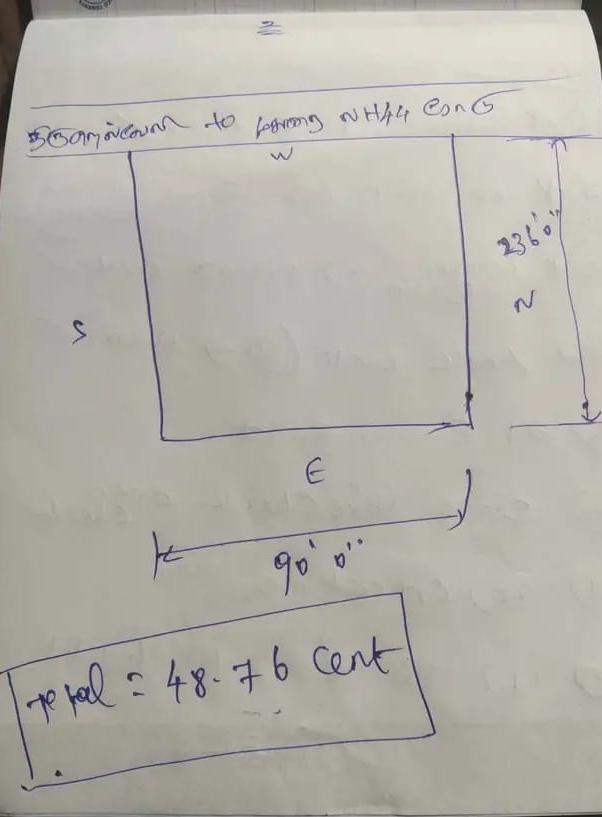 2
திருநெல்வேலி to மதுரை NH44 ரோடு
W
236'0"
N
S
E
90' 0"
Total = 48.76 Cent